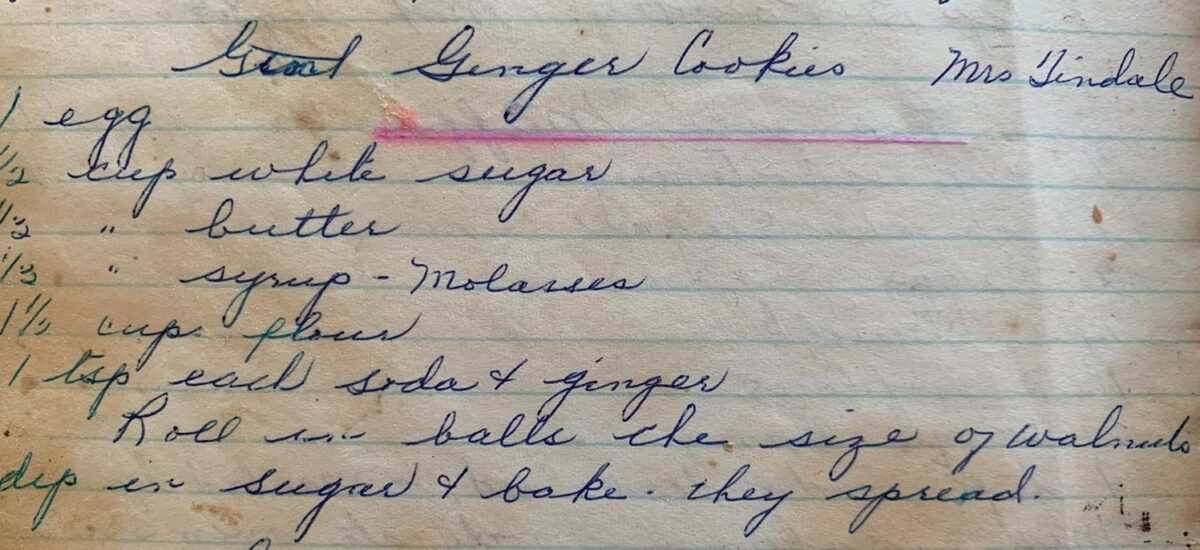 Ginger Cookies Mrs Tindale
1 egg
1/2 cup white sugar
" butter
1/3 " syrup - Molasses
cups flour
1 tsp each soda & ginger
Roll in balls the size of walnuts
dip in sugar & bake. they spread.